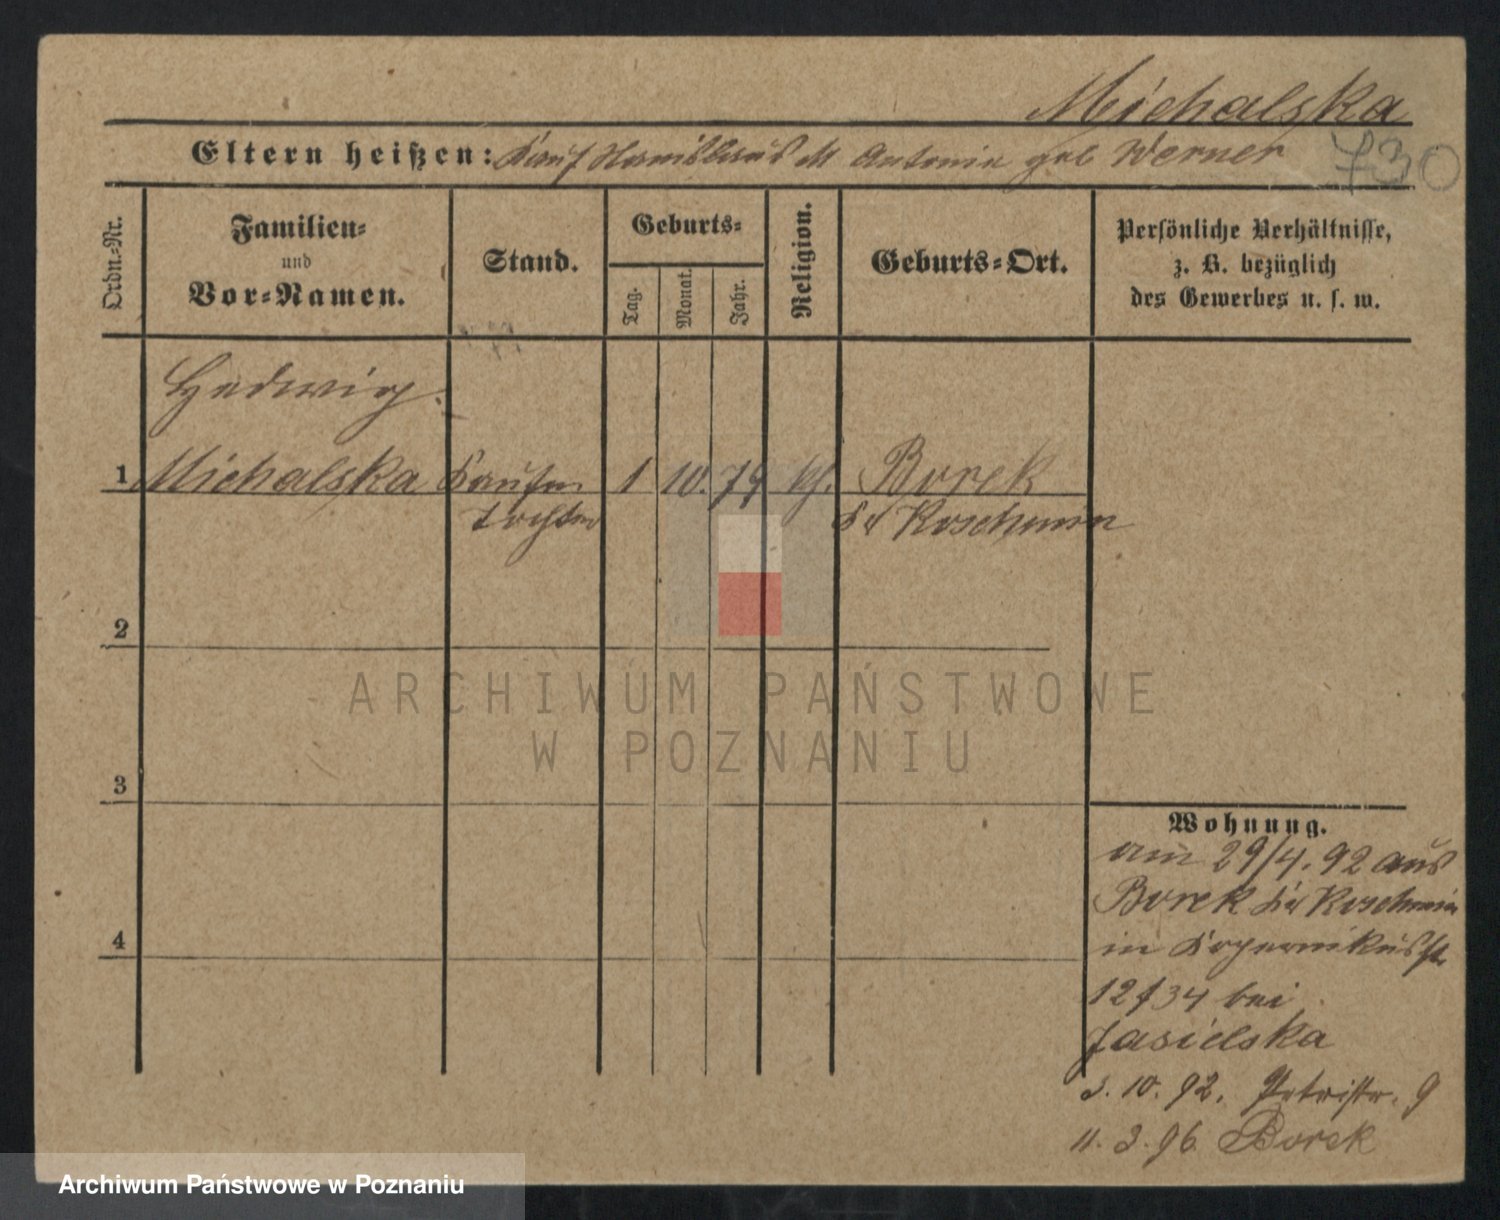 Michalska
730
Eltern heißen: Kauf Stanislaus M Antonie geb Werner
Ordn.-Nr.
Familien-
und
Vor-Namen.
Stand.
Geburts-
Tag.
Monat.
Jahr.
Religion.
Geburts-Ort.
Persönliche Verhältnisse,
z. B. bezüglich
des Gewerbes u. s. w.
Hedwig
1 Michalska Kaufm 1 10. 79 kth. Borek
tochter Kr Koschmin
2
3
4
Wohnung.
am 29/4. 92 aus
Borek Kr Koschmin
in Kopernikusstr
12 / 34 bei
Jasielska
3. 10. 92. Petristr. 9
11. 3. 96 Borek
ARCHIWUM PAŃSTWOWE
W POZNANIU
Archiwum Państwowe w Poznaniu